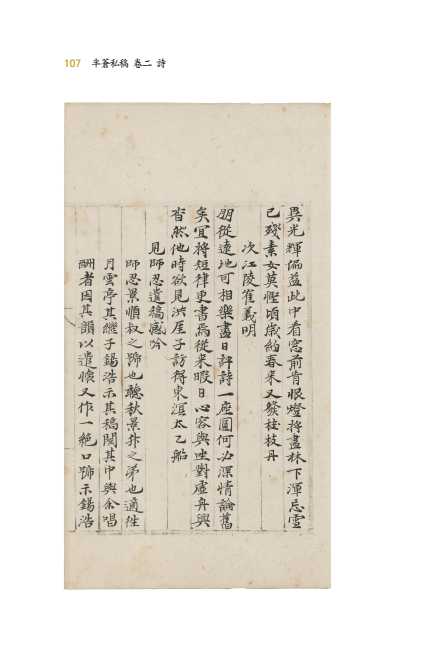 107 半蒼私稿 卷二 詩
異光輝偏益此中看窓前肯恨燈将盡林下渾忘雪
已殘素女莫慳頃歲約春来又發桂枝丹
次江陵崔義明
朋從遠地可相樂盡日評詩一座圓何必深情論舊
矣宜将短律更書焉從来暇日心容與坐對虛舟興
杳然他時欲見洪厓子訪得東溟太乙船
見師忍遺稿感吟
師忍景順叔之號也聽秋景井之弟也適往
月雲亭其繼子錫浩示其稿閱其中與余唱
酬者因其韻以遣懷又作一絶口號示錫浩